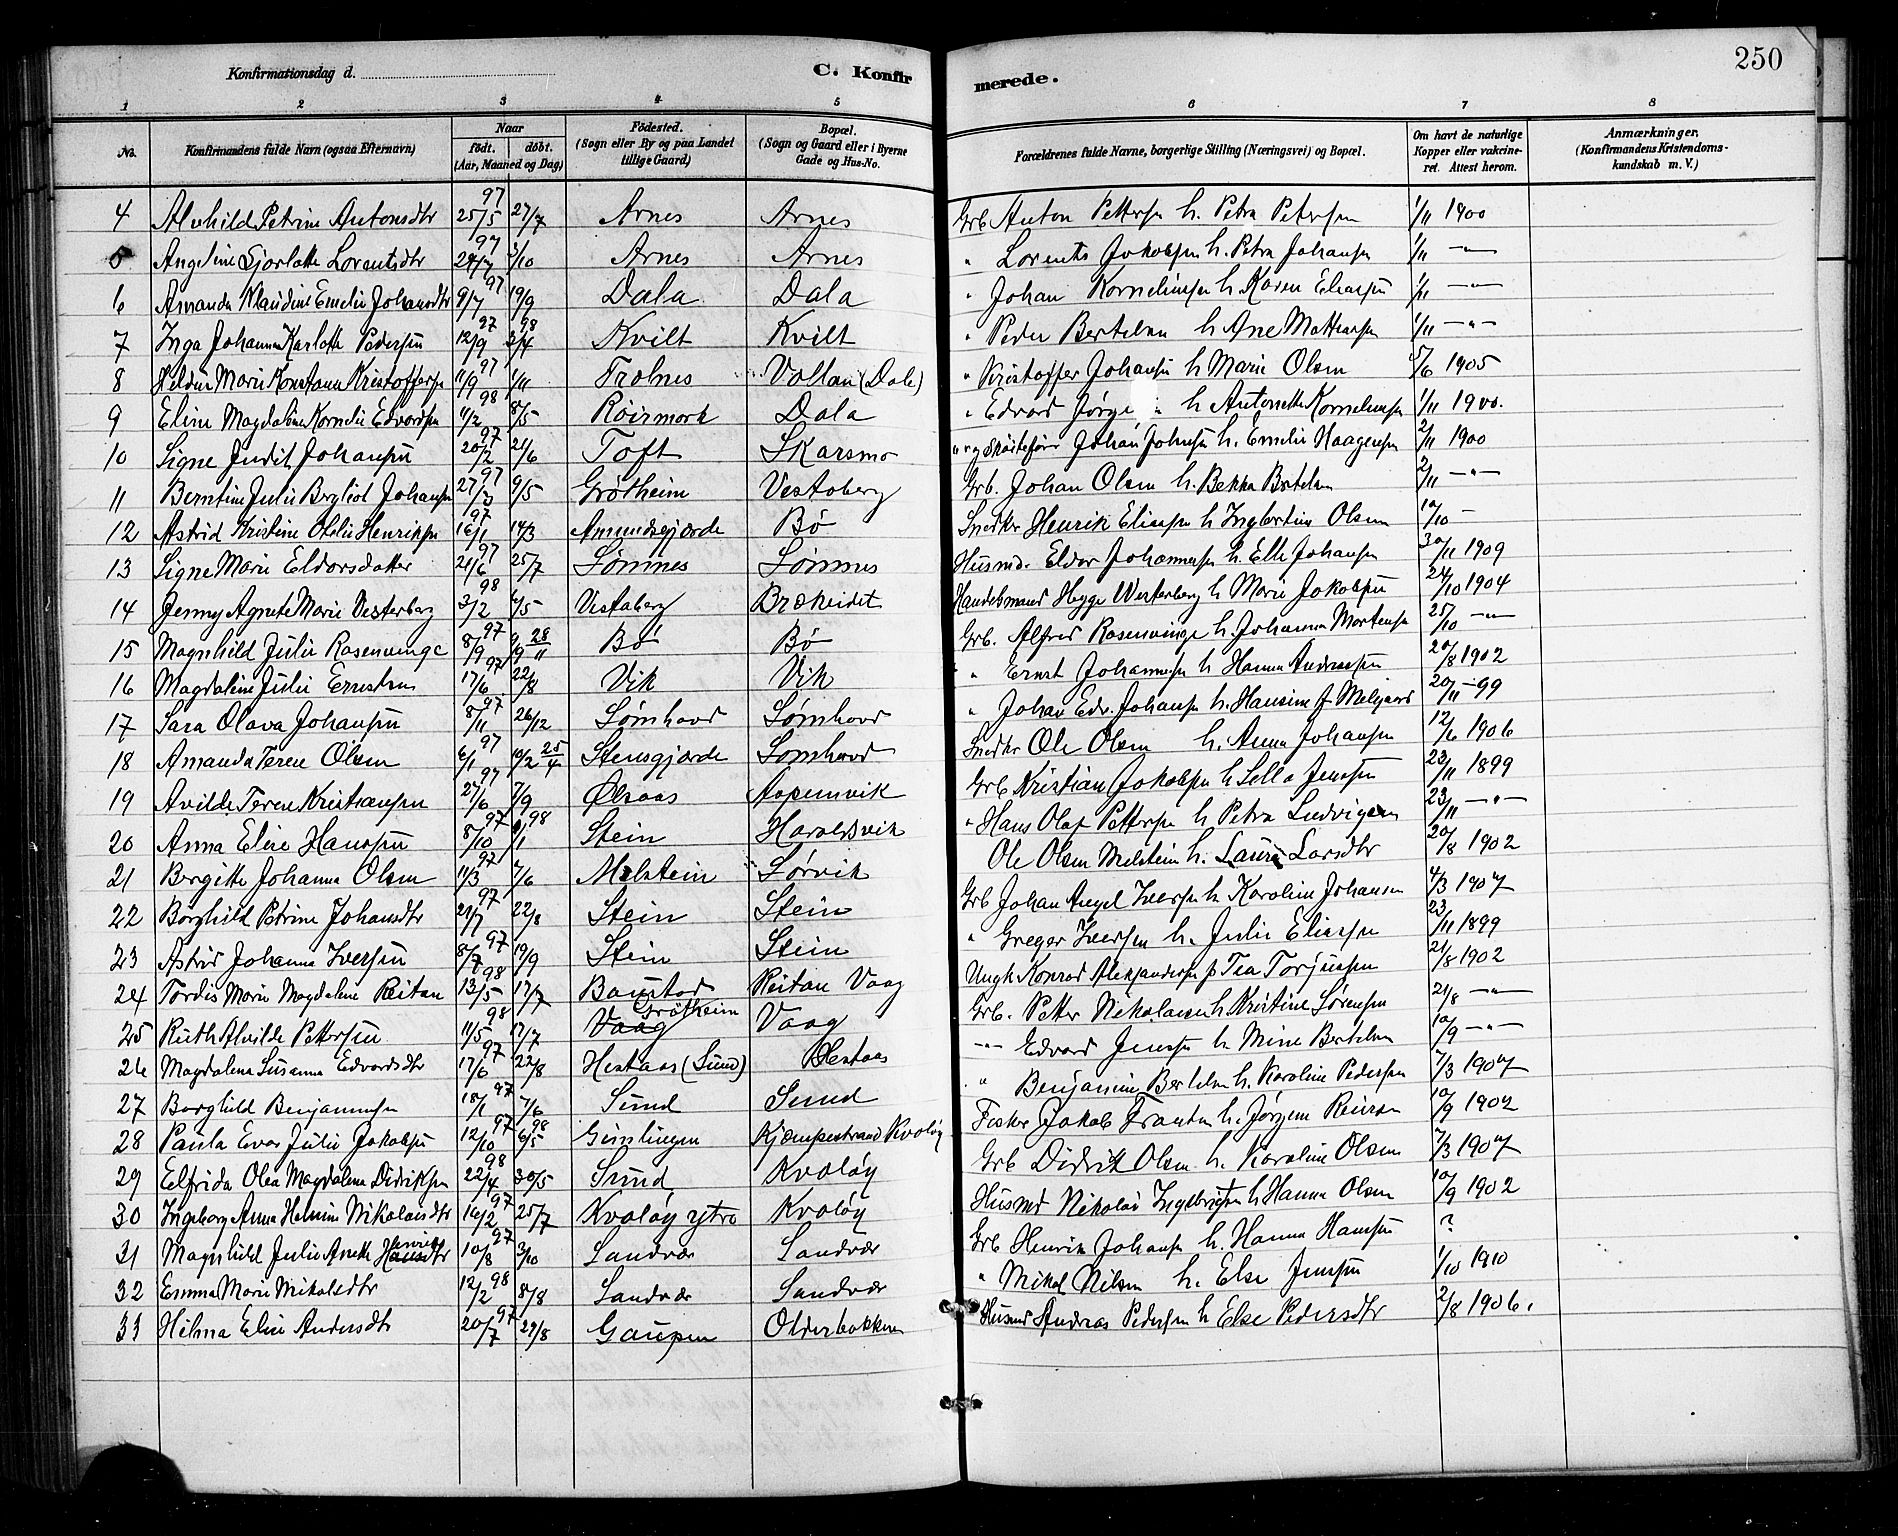 250
Konfirmationsdag d.
C. Konfirmerede.
1 2 3 4 5 6 7 8
No. Konfirmandens fulde Navn (ogsaa Efternavn) Naar født. døbt. (Aar, Maaned og Dag) Fødested. (Sogn eller By og paa Landet tillige Gaard) Bopæl. (Sogn og Gaard eller i Byerne Gade og Hus-No. Forældrenes fulde Navne, borgerlige Stilling (Næringsvei) og Bopæl. Om havt de naturlige Kopper eller vakcineret. Attest herom. Anmærkninger. (Konfirmandens Kristendomskundskab m. V.)
4 Alvhild Petrine Antonsdtr 97 25/5 27/7 Arnes Arnes Grb Anton Pettersen h. Petra Petersen 1/11 1900
5 Angeline Sjarlotte Lorentsdtr 97 3/10 Arnes Arnes " Lorents Jakobsen h. Petra Johansen 1/11 — " —
6 Amanda Klaudine Emelie Johansdtr 97 9/7 19/9 Dala Dala " Johan Kornelius­sen h Karen Eliassen 1/11 — " —
7 Inga Johanna Karlotte Pedersen 97 12/9 98 3/4 Kvilt Kvilt " Peder Bertelsen h Ane Mattisen 1/11 — " —
8 Marie Konstanse Kristoffersen 97 11/9 1/11 Trolnes Vollan (Dale) " Kristoffer Johansen h Marie Olsen 5/6 1905
9 Eline Magdalena Kornelie Edvardsen 98 11/2 8/5 Röirmark Dala " Edvard h Antonette Kornelius­sen 1/11 1900.
10 Signe Judit Johansen 97 20/2 21/6 Toft Skarsmo Johan Johnsen h. Emelie Haagensen 2/11 1900
11 Berntine Julie Bergliot Johansen 97 27/3 9/5 Grötheim Vestaberg Grb. Johan Olsen h. Bekka Bertelsen 2/11 — " —
12 Astrid Kristine Otelie Henriksen 97 16/1 14/3 Amundsgjærde Bö Snedker Henrik Eliassen h Ingbertine Olsen 10/10 —
13 Signe Marie Eldorsdatter 97 21/6 25/7 Sömnes Sömnes Husmd. Eldor Johannesen h. Elle Johansen 30/11 1909
14 Jenny Agnete Marie Vesterberg 98 3/2 /5 Vestaberg Brækeidet Handelsmand Hegge Westerberg h Marie Jakobsen 24/10 1904
15 Magnhild Julie Rosenvinge 97 8/9 28/11 Bö Bö Grb. Alfred Rosenvinge h. Johanna Mortensen 25/10 — " —
16 Magdaline Julie Ernstsen 97 17/6 22/8 Vik Vik " Ernst Johannesen h Hanna Andreassen 20/8 1902
17 Sara Olava Johansen 97 8/11 26/12 Sömhovd Sömhovd " Johan Edv. Johansen h. Hansine 20/11 - 99
18 Amanda Terese Olsen 97 6/1 25/4 Stensgjærde Sömhovd Snedker Ole Olsen h. Anna Johansen 12/6 1906
19 Avilde Terese Kristiansen 97 27/6 7/9 Ölsaas Aapenvik Grb Kristian Jakobsen h Sella Jensen 23/11 1899
20 Anna Elise Hansen 97 8/10 98 9/1 Stein Haroldsvik " Hans Olaf Pettersen h Petra Ludvigsen 23/11 — " —
21 Bergitte Johanna Olsen 97 11/3 7/6 Melstein Sörvik Ole Olsen Melstein h. Laura Larsdtr 20/8 1902
22 Borghild Petrine Johansdtr 97 21/7 22/8 Stein Stein Grb Johan Angel Iversen h Karoline Johansen 4/3 1907
23 Astrid Johanna Iversen 97 8/7 19/9 Stein Stein " Greger Iversen h. Julie Eliassen 23/11 1899
24 Tordis Marie Magdalene Reitan 98 13/5 17/7 Baustad Reitan Vaag Ungk Konrad Aleksandersen p Tea Torjussen 21/8 1902
25 Ruth Alvilde Pettersen 98 11/5 17/7 Vaag Grötheim Vaag Grb. Petter Nikolaisen h Kristine Sörensen 21/8 — " —
26 Magdalena Susanna Edvardsdtr 97 17/6 22/8 Hestaas (Sund) Hestaas — " — Edvard Jensen h Mine Bertelsen 10/9 — " —
27 Borghild Benjaminsen 97 18/1 7/6 Sund Sund " Benjamin Bertelsen h. Karoline Pedersen 7/3 1907
28 Paula Evas Julie Jakobsen 97 12/10 98 6/5 Gimlingen Kjæmpestrand Kvalöy Fisker Jakob Frantsen h. Jörgine Reinsen 10/9 1902
29 Elfrida Olea Magdalena Didriksen 98 22/4 30/5 Sund Kvalöy Grb Didrik Olsen h. Karoline Olsen 7/3 1907
30 Ingeborg Anna Helmine Nikolaisdtr 97 14/2 25/7 Kvalöy ytre Kvalöy Husmd Nikolai Ingebrigtsen h Hanna Olsen 10/9 1902
31 Magnhild Julie Anette Henriksdtr 97 10/8 3/10 Sandvær Sandvær Grb Henrik Johansen h. Hanna Hansen ?
32 Emma Marie Mikalsdtr 98 12/2 8/8 Sandvær Sandvær " Mikal Nilsen h. Else Jensen 1/10 1910
33 Hilma Elise Andersdtr 97 20/7 29/8 Gaupen Olderbakken Husmd Andreas Pedersen h Else Pedersdtr 2/8 1906.